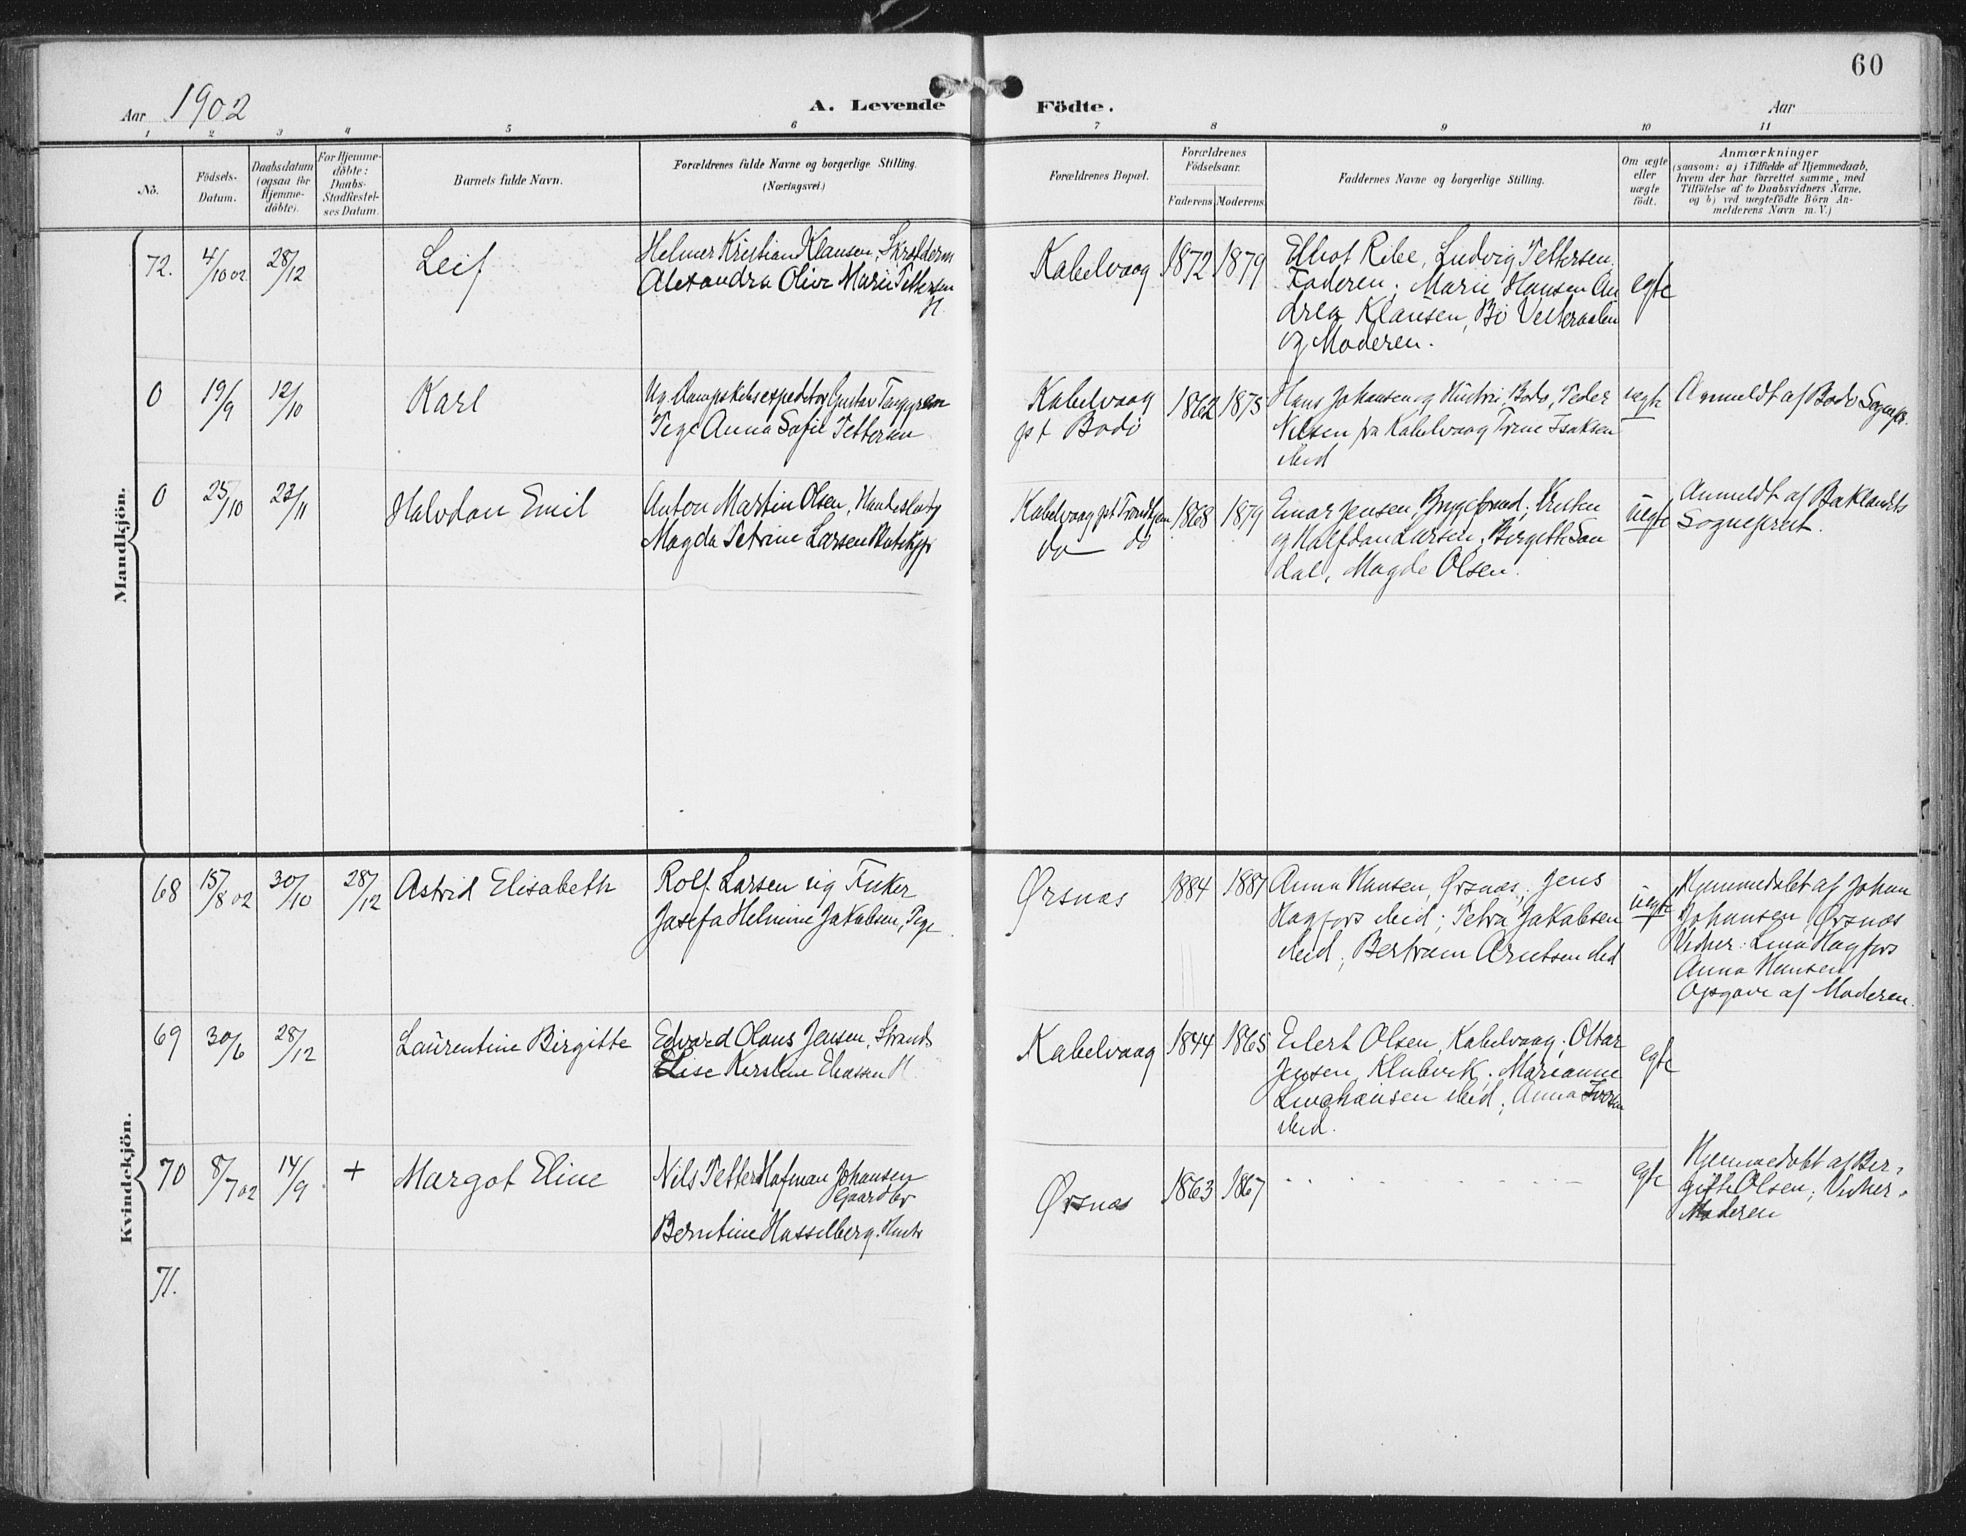 60
Aar 1902 A. Levende Födte. Aar
1 2 3 4 5 6 7 8 9 10 11
No. Födsels-Datum. Daabsdatum (ogsaa for Hjemme-döbte). For Hjemme-döbte: Daabs-Stadfæstel-ses Datum. Barnets fulde Navn. Forældrenes fulde Navne og borgerlige Stilling. (Næringsvei.) Forældrenes Bopæl. Forældrenes Födselsaar. Faderens Moderens Faddernes Navne og borgerlige Stilling. Om ægte eller uægte födt. Anmærkninger (saasom: a) i Tilfælde af Hjemmedaab, hvem der har forrettet samme, med Tilföielse af to Daabsvidners Navne, og b) ved uægtefödte Börn An-melderens Navn m. V.)
Mandkjön.
72. 4/10 02 28/12 Leif
Helmer Kristian Klausen,
Alexandra Olive Marie Pettersen
H.
Kabelvaag 1872 1879
Elliot Ribe, Ludvig Pettersen,
Faderen; Marie Hansen An
drea Klausen, Bö Vesteraalen
og Moderen.
egte
0 19/9 12/10 Karl
Ug. Dampskibsexpeditør Gustav
Pige Anna Sofie Pettersen
Kabelvaag
pt Bodö
1862 1875
Hans Johansen og Hustru, Bodø, Peder
Nilsen fra Kabelvaag Trine Isaksen
ibid
uegte
Anmeldt af Bodø Sognepr.
0 25/10 23/11 Halvdan Emil
Anton Martin Olsen,
Magda Petrine Larsen
Kabelvaag pt Trondhjem
do do
1868 1879
Einar Jensen,
og Halfdan Larsen, Birgitte San
dal, Magda Olsen.
uegte
Anmeldt af Baklandets
Sogneprest.
Kvindekjön.
68 15/8 02 30/10 28/12 Astrid Elisabeth
Rolf Larsen ug Fisker
Josefa Helmine Jakobsen, Pige
Ørsnæs 1884 1881
Anna Hansen, Ørsnæs, Jens
Hagfors ibid; Petra Jakobsen
ibid; Bertram Arntsen ibid
uegte
Hjemmedøbt af Johan
Johansen Ørsnæs
Vidner: Lina Hagfors
Anna Hansen
Opgave af Moderen.
69 30/6 28/12 Laurentine Birgitte
Edvard Olaus Jensen, Strands
Else Kirstine Eliassen H.
Kabelvaag 1844 1865
Eilert Olsen, Kabelvaag; Ottar
Jensen, Klubvik. Marianne
ibid; Anna Iversen
ibid.
egte
70 8/7 02 14/9 + Margot Eline
Nils Petter Hofman Johansen
Gaardbr
Berntine Hasselberg. Hustr
Ørsnæs 1863 1867
egte
Hjemmedøbt af Bir-
gitte Olsen; Vidner-
Moderen
71.